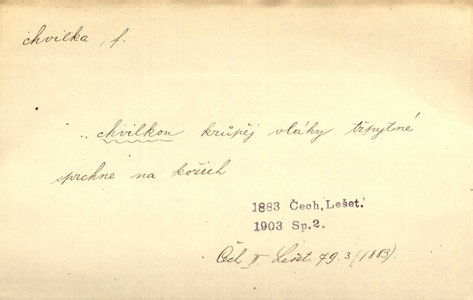 chvilka, f.
.. chvilkou krůpěj vláhy třpytné
sprchne na kožich
1883 Čech, Lešet.
1903 Sp.2.
Čch II. Lešet. 49.3 (1883).